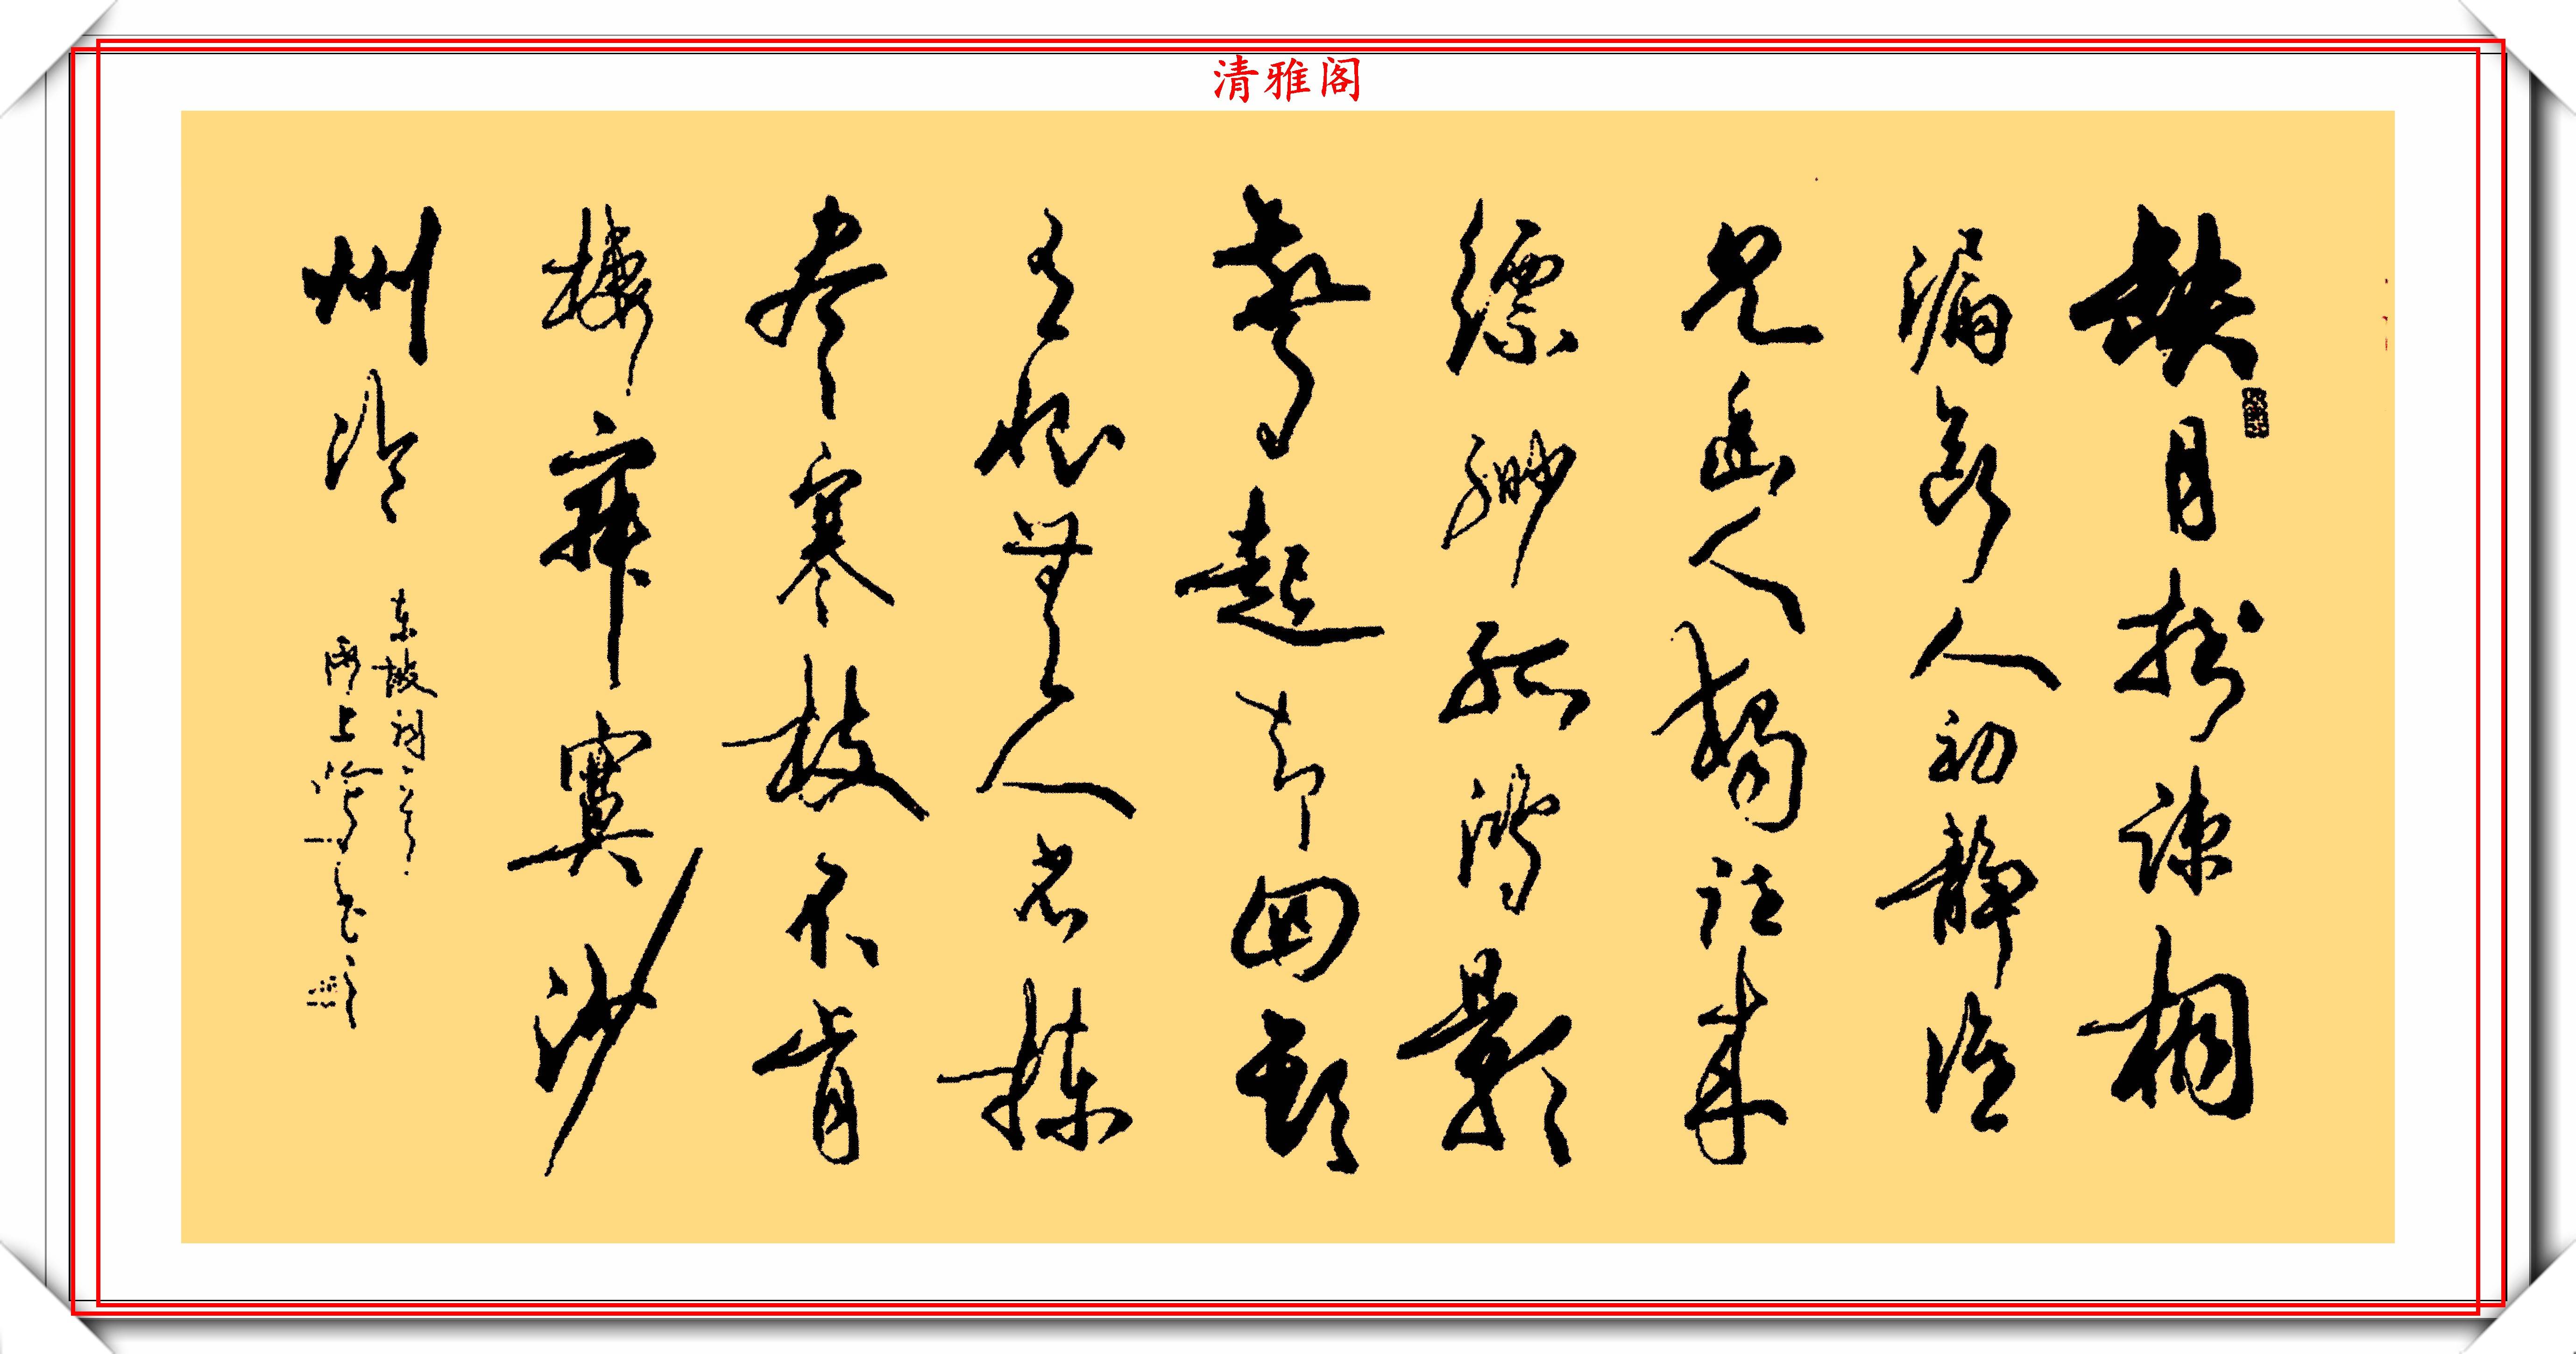 清雅阁
缺月掛疎桐
漏断人初静谁
见幽人獨往来
缥缈孤鸿影
驚起却回頭
有恨無人省揀
尽寒枝不肯
棲寂寞沙
州冷
东坡词一首